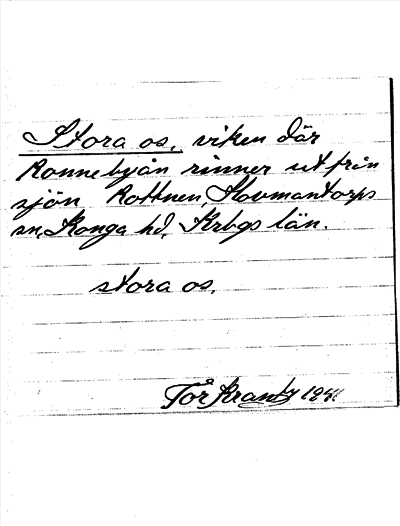 Stora os, viken där
Ronnebyån rinner ut från
sjön Rottnen, Hovmantorps
sn, Konga hd, Krbgs län.
stora os.
Tor Krantz